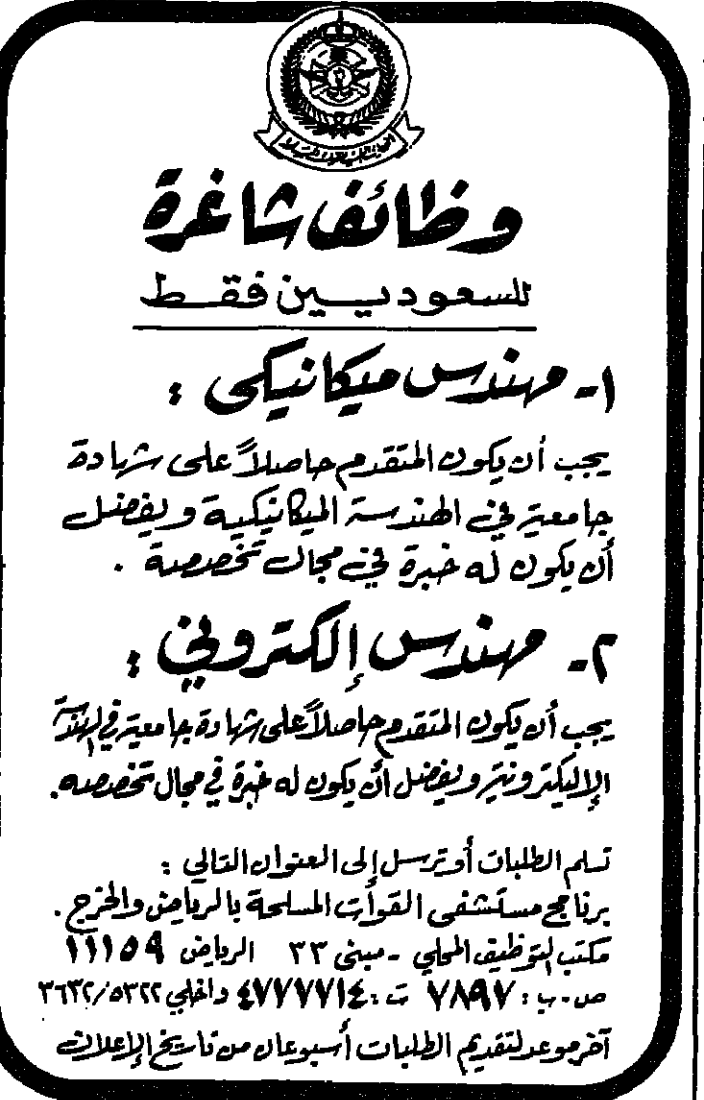 وظائف شاغرة
للسعوديين فقط
١- مهندس ميكانيكى :
يجب أن يكون المتقدم حاصلاً على شهادة
جامعية في الهندسة الميكانيكية ويفضل
أن يكون له خبرة في مجال تخصصة .
٢- مهندس إلكتروني :
يجب أن يكون المتقدم حاصلاً على شهادة جامعية في الهندسة
الإليكترونية ويفضل أن يكون له خبرة في مجال تخصصه.
تسلم الطلبات أو ترسل إلى العنوان التالي :
برنامج مستشفى القوات المسلحة بالرياض والخرج .
مكتب التوظيف المحلي - مبنى ٣٣ الرياض ١١١٥٩
ص.ب : ٧٨٩٧ ت : ٤٧٧٧٧١٤ داخلي ٣٦٣٢/٥٣٢٢
آخر موعد لتقديم الطلبات أسبوعان من تاريخ الإعلان